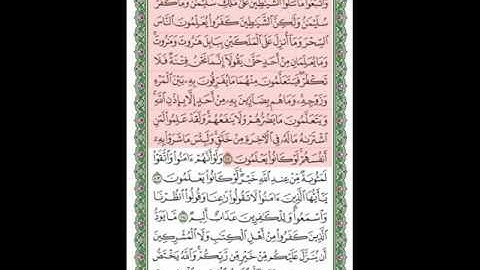 وَٱتَّبَعُوا۟ مَا تَتْلُوا۟ ٱلشَّيَٰطِينُ عَلَىٰ مُلْكِ سُلَيْمَٰنَ وَمَا كَفَرَ
سُلَيْمَٰنُ وَلَٰكِنَّ ٱلشَّيَٰطِينَ كَفَرُوا۟ يُعَلِّمُونَ ٱلنَّاسَ
ٱلسِّحْرَ وَمَآ أُنزِلَ عَلَى ٱلْمَلَكَيْنِ بِبَابِلَ هَٰرُوتَ وَمَٰرُوتَ
وَمَا يُعَلِّمَانِ مِنْ أَحَدٍ حَتَّىٰ يَقُولَآ إِنَّمَا نَحْنُ فِتْنَةٌ فَلَا
تَكْفُرْ فَيَتَعَلَّمُونَ مِنْهُمَا مَا يُفَرِّقُونَ بِهِۦ بَيْنَ ٱلْمَرْءِ
وَزَوْجِهِۦ وَمَا هُم بِضَآرِّينَ بِهِۦ مِنْ أَحَدٍ إِلَّا بِإِذْنِ ٱللَّهِ
وَيَتَعَلَّمُونَ مَا يَضُرُّهُمْ وَلَا يَنفَعُهُمْ وَلَقَدْ عَلِمُوا۟ لَمَنِ
ٱشْتَرَىٰهُ مَا لَهُۥ فِى ٱلْءَاخِرَةِ مِنْ خَلَٰقٍ وَلَبِئْسَ مَا شَرَوْا۟ بِهِۦٓ
أَنفُسَهُمْ لَوْ كَانُوا۟ يَعْلَمُونَ ١٠٢ وَلَوْ أَنَّهُمْ ءَامَنُوا۟ وَٱتَّقَوْا۟
لَمَثُوبَةٌ مِّنْ عِندِ ٱللَّهِ خَيْرٌ لَّوْ كَانُوا۟ يَعْلَمُونَ ١٠٣
يَٰٓأَيُّهَا ٱلَّذِينَ ءَامَنُوا۟ لَا تَقُولُوا۟ رَٰعِنَا وَقُولُوا۟ ٱنظُرْنَا
وَٱسْمَعُوا۟ وَلِلْكَٰفِرِينَ عَذَابٌ أَلِيمٌ ١٠٤ مَّا يَوَدُّ
ٱلَّذِينَ كَفَرُوا۟ مِنْ أَهْلِ ٱلْكِتَٰبِ وَلَا ٱلْمُشْرِكِينَ
أَن يُنَزَّلَ عَلَيْكُم مِّنْ خَيْرٍ مِّن رَّبِّكُمْ وَٱللَّهُ يَخْتَصُّ